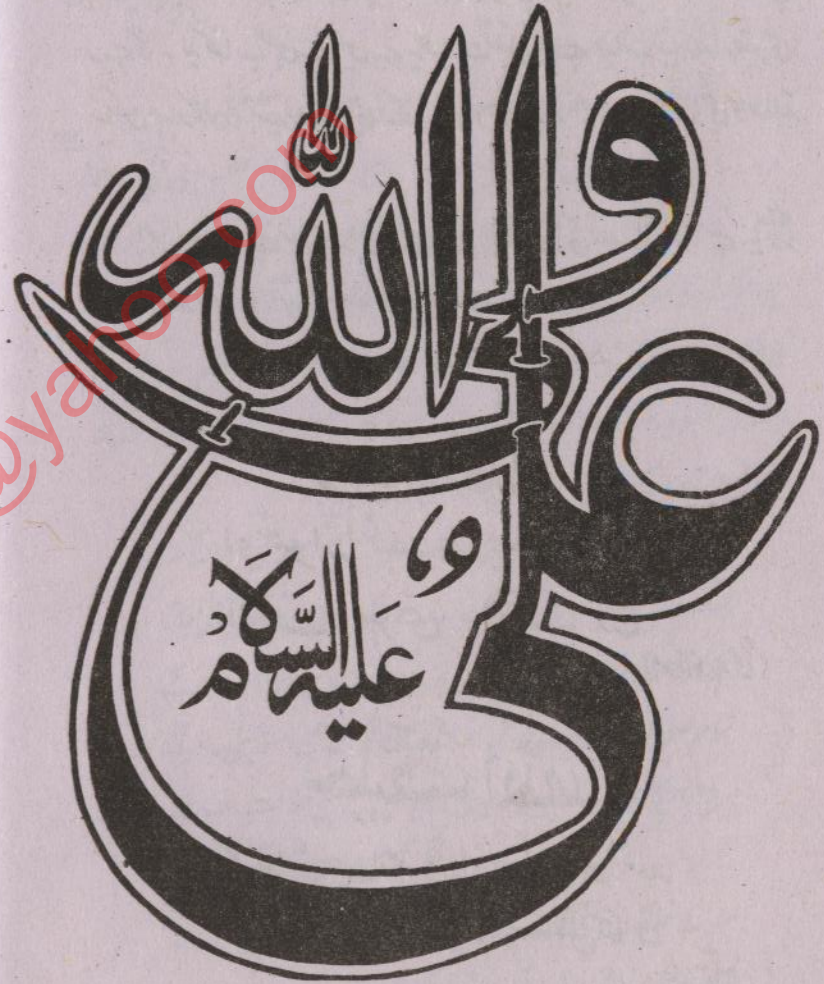 علی ولی اللہ
عَلَیْہِ السَّلَامُ
@yahoo.com